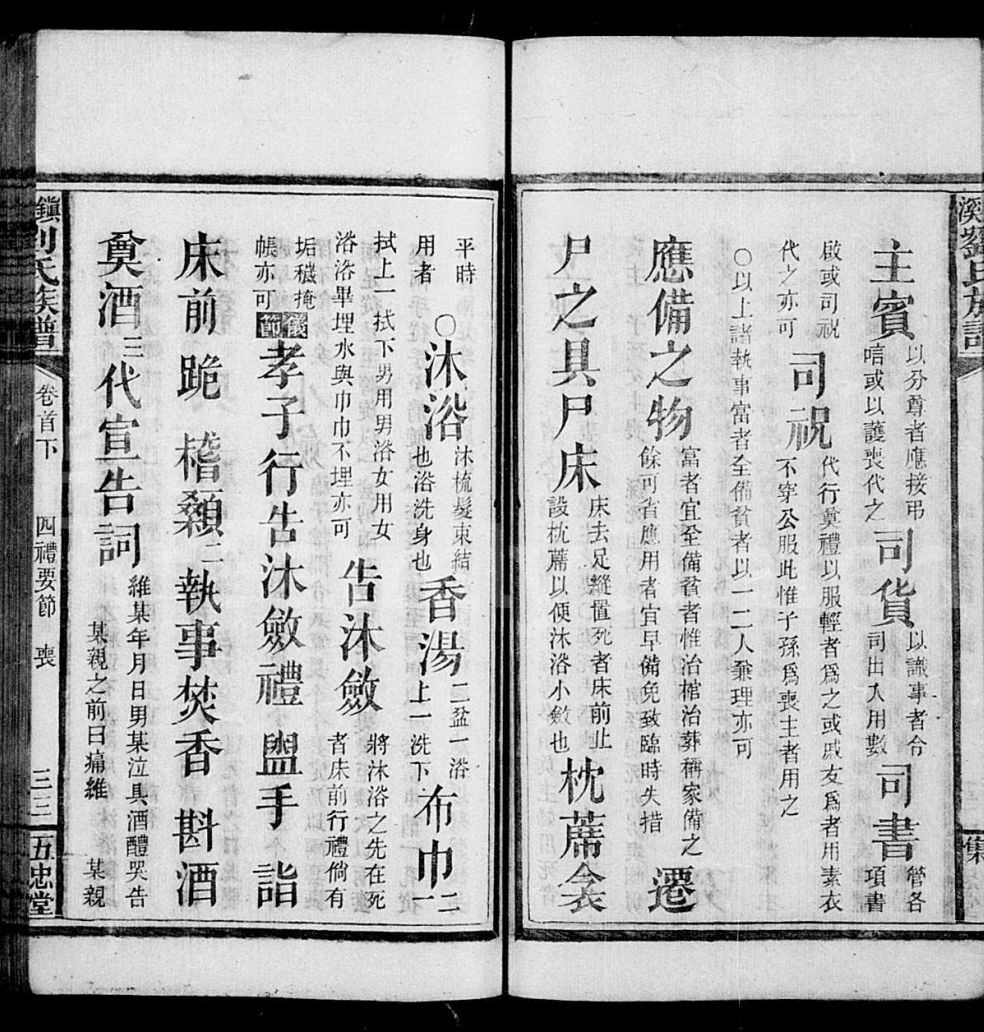 溪劉氏族譜
集
主賓 以分尊者應接弔唁或以護喪代之 司貨 以識事者令司出入用數 司書 管各項書
啟或司祝代之亦可 司祝 代行奠禮以服輕者爲之或戚友爲者用素衣不穿公服此惟子孫爲喪主者用之
○以上諸執事富者全備貧者以一二人兼理亦可
應備之物 富者宜全備貧者惟治棺治葬稱家備之餘可省應用者宜早備免致臨時失措 遷
尸之具尸床 床去足縱置死者床前止設枕蓆以便沐浴小斂也 枕蓆衾
平時用者 ○沐浴 沐梳髮束結也浴洗身也 香湯 二盆一浴上一洗下 布巾 二一
拭上一拭下男用男浴女用女浴浴畢埋水與巾巾不埋亦可 告沐斂 將沐浴之先在死者床前行禮倘有
垢穢掩帳亦可 儀節 孝子行告沐斂禮 盥手 詣
床前 跪 稽顙 二 執事焚香 斟酒
奠酒 三 代宣告詞 維某年月日男某泣具酒醴哭告 某親之前曰痛維 某親
鎮劉氏族譜 卷首下 四禮要節 喪 三三 五忠堂